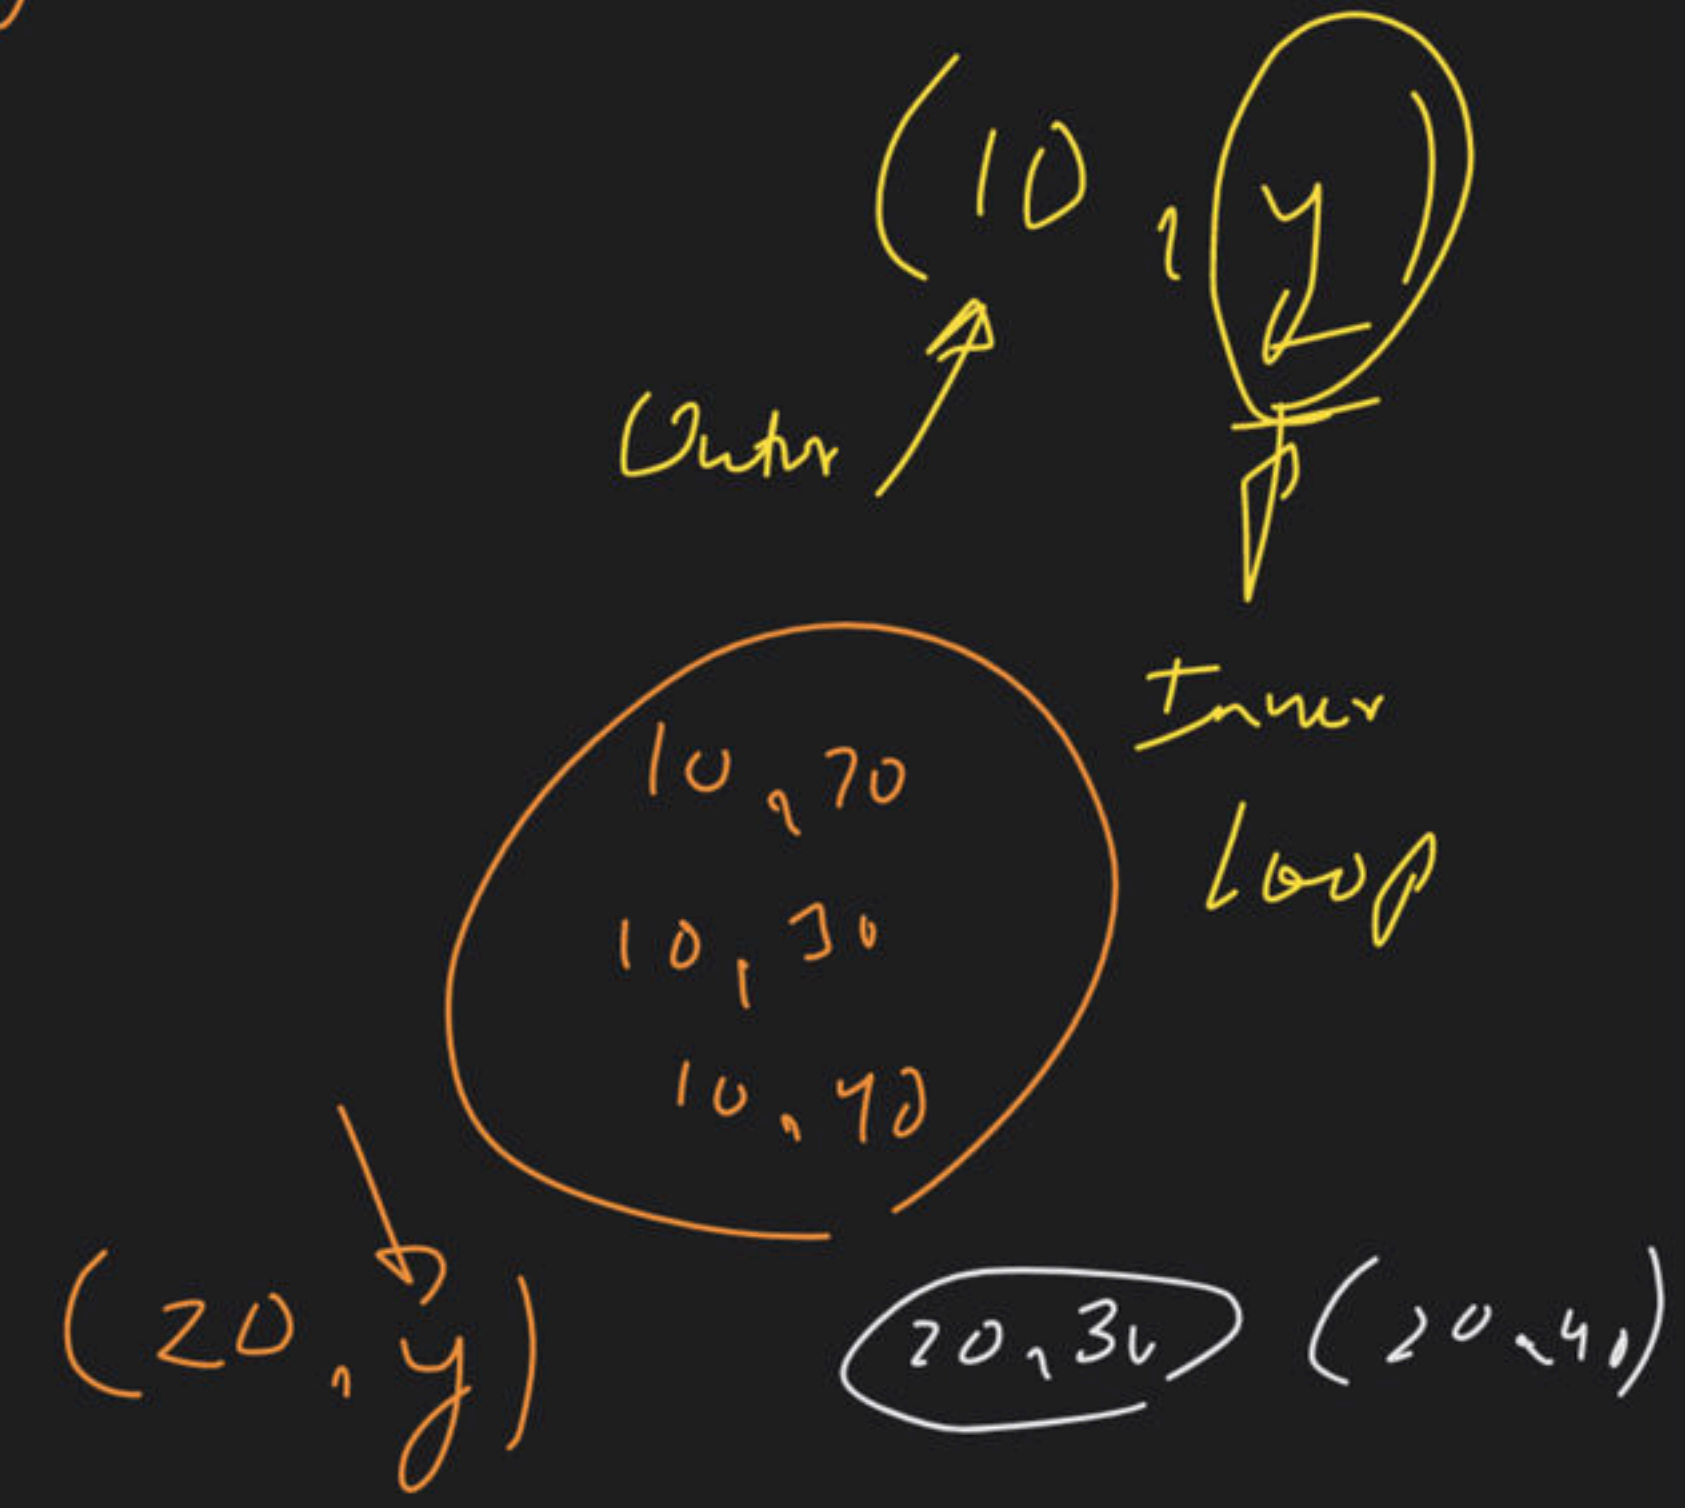 (10, y)
Outer
Inner
Loop
10, 20
10, 30
10, 40
(20, y)
20, 30
(20, 40)